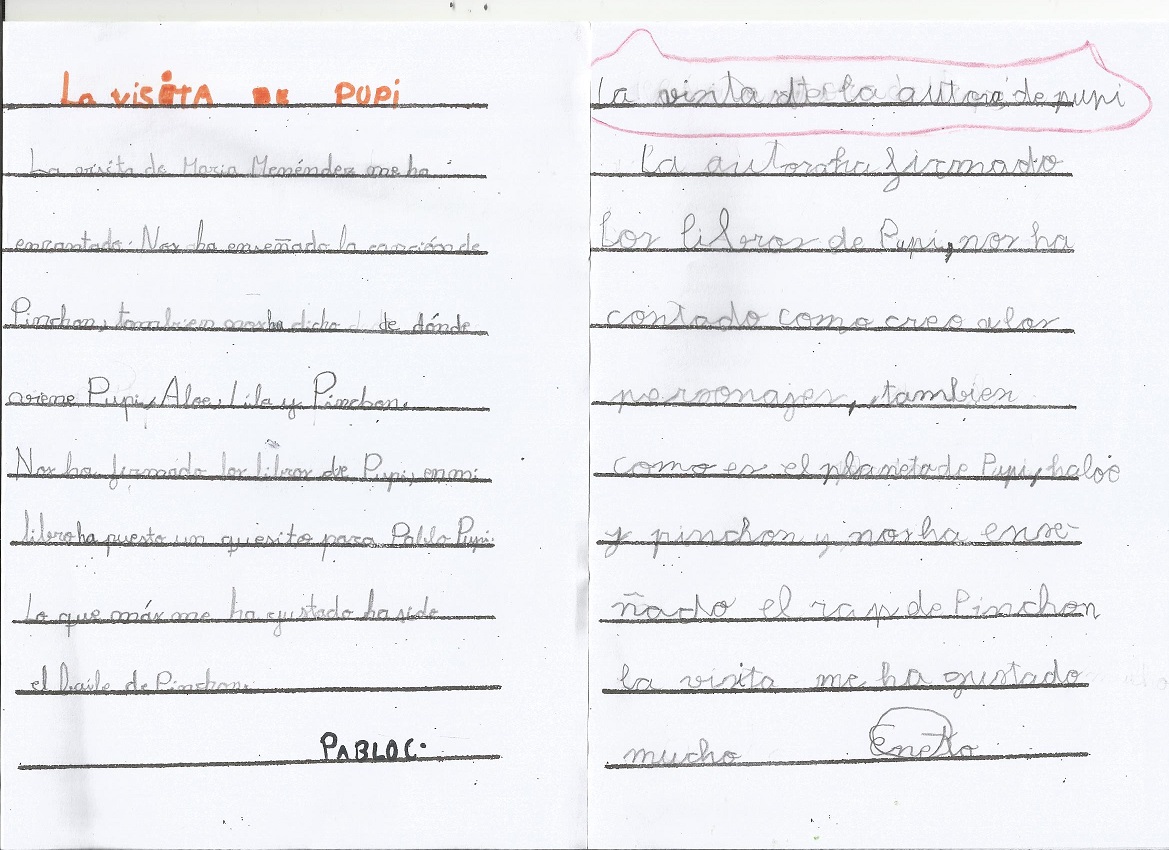 La visita de PUPi
La visita de María Menéndez me ha
encantado. Nos ha enseñado la canción de
Pinchon, tambien nos ha dicho de dónde
viene Pupi, Aloe, Lila y Pinchon.
Nos ha firmado los libros de Pupi, en mi
libro ha puesto un quesito para Pablo Pupi.
Lo que más me ha gustado ha sido
el baile de Pinchon.
PABLO C.
La visita de la autora de pupi
La autora ha firmado
Los libros de Pupi, nos ha
contado como creo a los
personajes, tambien
como es el planeta de Pupi, haloe
y pinchon y nos ha ense-
ñado el rap de Pinchon
la visita me ha gustado
mucho